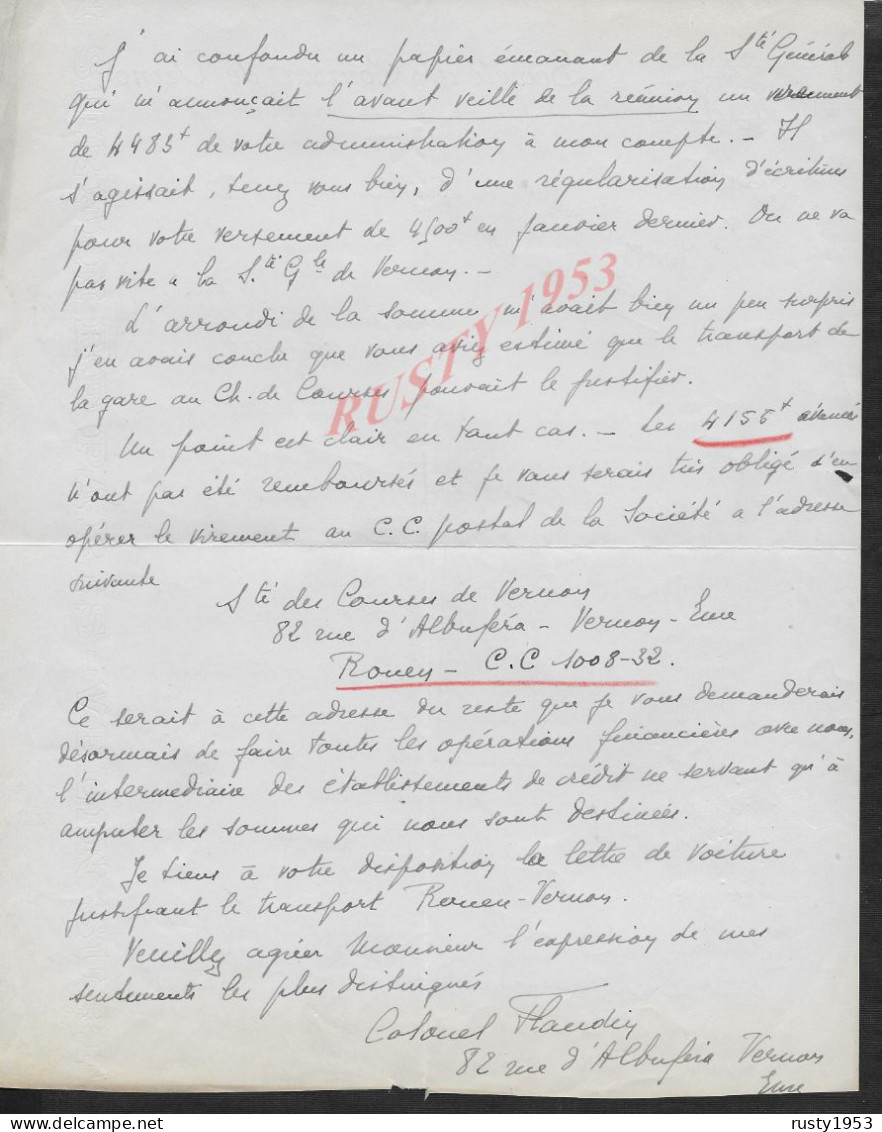 J'ai confondu un papier émanant de la Sté Générale
qui m'annonçait l'avant veille de la réunion un virement
de 4485f de votre administration à mon compte. - Il
s'agissait, tenez vous bien, d'une régularisation d'écritures
pour votre versement de 4500f en Janvier dernier. On ne va
pas vite a la S.té Gle de Vernon. -
L'arrondi de la somme m'avait bien un peu surpris
j'en avais conclu que vous aviez estimé que le transport de
la gare au Ch. de Courses pouvait le justifier.
RUSTY 1953
Un point est clair en tout cas. - Les 4155f avancés
n'ont pas été remboursés et je vous serais très obligé d'en
opérer le virement au C.C. postal de la Société a l'adresse
suivante
Sté des Courses de Vernon
82 rue d'Albuféra - Vernon - Eure
Rouen - C.C 1008-32.
Ce serait à cette adresse du reste que je vous demanderais
désormais de faire toutes les opérations financières avec nous,
l'intermediaire des établissements de crédit ne servant qu'à
amputer les sommes qui nous sont destinées.
Je tiens à votre disposition la lettre de voiture
justifiant le transport Rouen-Vernon.
Veuillez agréer Monsieur l'expression de mes
sentiments les plus distingués
Colonel Flandin
82 rue d'Albuféra Vernon
Eure
rusty1953